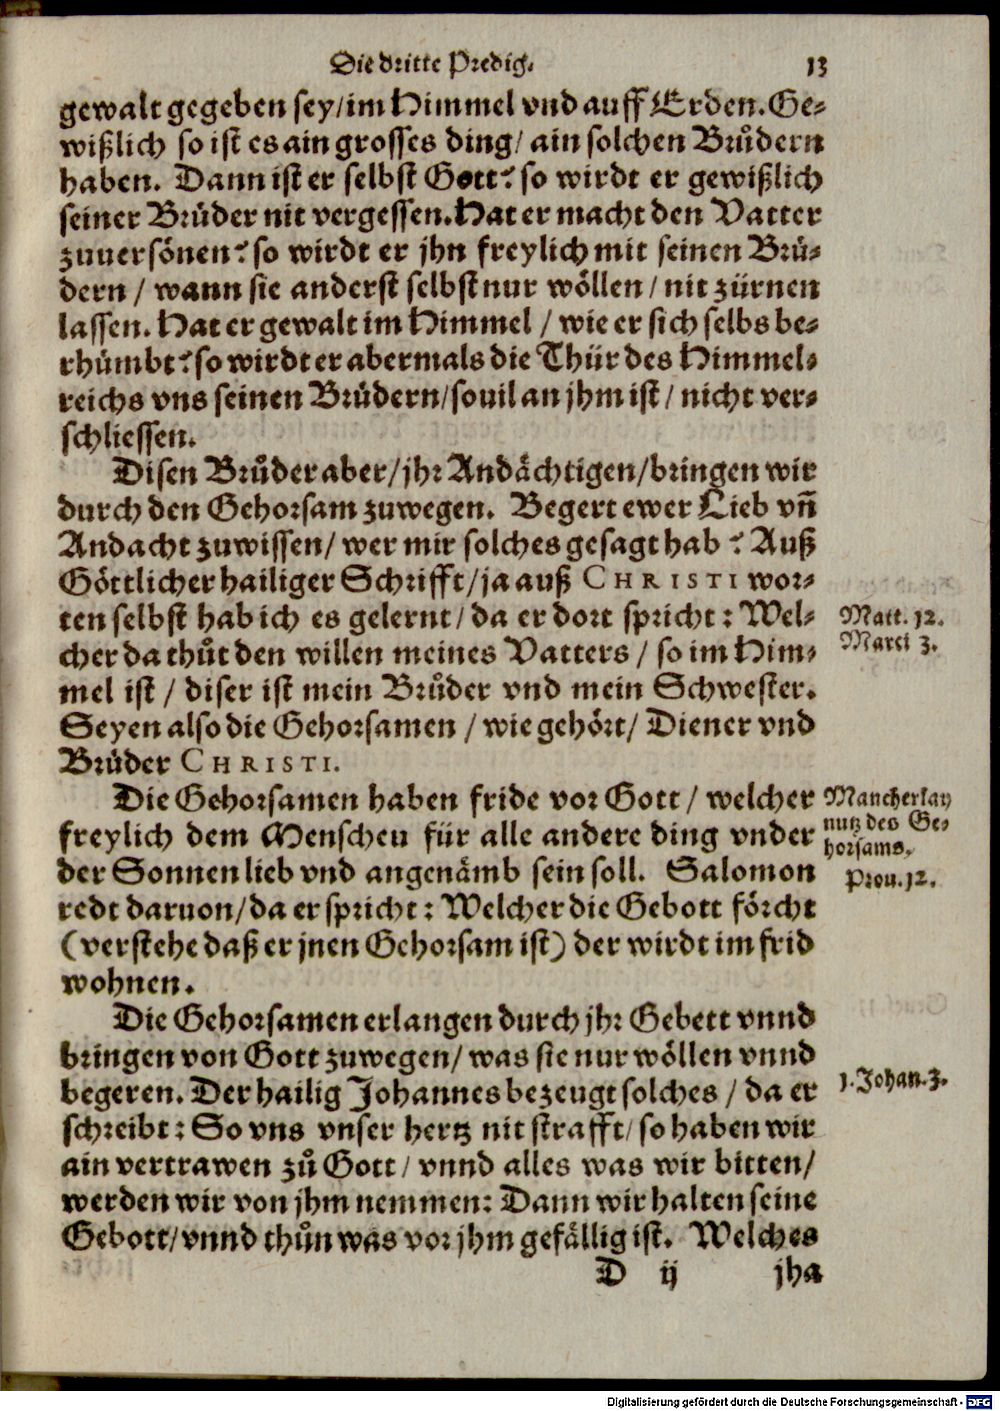 Die dritte Predig. 13
gewalt gegeben sey/im Himmel vnd auff Erden. Ge-
wißlich so ist es ain grosses ding/ ain solchen Brůdern
haben. Dann ist er selbst Gott? so wirdt er gewißlich
seiner Brůder nit vergessen. Hat er macht den Vatter
zuuersönen? so wirdt er jhn freylich mit seinen Brů-
dern / wann sie anderst selbst nur wöllen / nit zürnen
lassen. Hat er gewalt im Himmel / wie er sich selbs be-
rhůmbt? so wirdt er abermals die Thür des Himmel-
reichs vns seinen Brůdern/souil an jhm ist / nicht ver-
schliessen.
Disen Brůder aber/jhr Andächtigen/bringen wir
durch den Gehorsam zuwegen. Begert ewer Lieb vñ
Andacht zuwissen/ wer mir solches gesagt hab? Auß
Göttlicher hailiger Schrifft/ja auß CHRISTI wor-
ten selbst hab ich es gelernt/ da er dort spricht: Wel-
cher da thůt den willen meines Vatters / so im Him-
mel ist / diser ist mein Brůder vnd mein Schwester.
Seyen also die Gehorsamen / wie gehört/ Diener vnd
Brůder CHRISTI.
Matt. 12.
Marci 3.
Die Gehorsamen haben fride vor Gott / welcher
freylich dem Menschen für alle andere ding vnder
der Sonnen lieb vnd angenämb sein soll. Salomon
redt daruon/da er spricht: Welcher die Gebott förcht
(verstehe daß er jnen Gehorsam ist) der wirdt im frid
wohnen.
Mancherlay
nutz des Ge-
horsams.
Prou. 12.
Die Gehorsamen erlangen durch jhr Gebett vnnd
bringen von Gott zuwegen/ was sie nur wöllen vnnd
begeren. Der hailig Johannes bezeugt solches / da er
schreibt: So vns vnser hertz nit strafft/ so haben wir
ain vertrawen zů Gott/ vnnd alles was wir bitten/
werden wir von jhm nemmen: Dann wir halten seine
Gebott/vnnd thůn was vor jhm gefällig ist. Welches
1. Johan. 3.
D ij jha
Digitalisierung gefördert durch die Deutsche Forschungsgemeinschaft - DFG